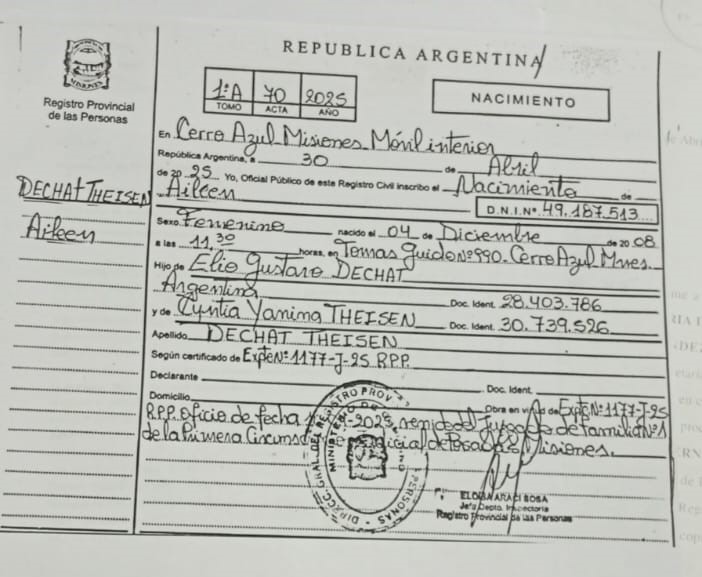 REPUBLICA ARGENTINA
MISIONES
Registro Provincial
de las Personas
1ºA 70 2025
TOMO ACTA AÑO
NACIMIENTO
En Cerro Azul Misiones Móvil interior
República Argentina, a 30 de Abril
de 20 25 Yo, Oficial Público de este Registro Civil inscribo el Nacimiento de
DECHAT THEISEN
Aileen
Aileen D.N.I.Nº 49.187.513
Sexo Femenino nacido el 04 de Diciembre de 20 08
a las 11,30 horas, en Tomas Guido Nº 990 - Cerro Azul Mnes.
Hijo de Elio Gustavo DECHAT
Argentina Doc. Ident. 28.403.786
y de Cyntia Yanina THEISEN Doc. Ident. 30.739.526
Apellido DECHAT THEISEN
Según certificado de Expte Nº 1177-J-25 RPP.
Declarante Doc. Ident.
Domicilio Obra en virtud de Expte Nº 1177-J-25
R.P.P. Oficio de fecha remide del Juzgado de Familia Nº 1
de la Primera Judicial de Posadas Misiones.
DIRECC. GRAL. DEL REGISTRO PROV. PERSONAS
MINISTERIO DE
ELOISA ARACI SOSA
Jefa Depto. Inspectoría
Registro Provincial de las Personas